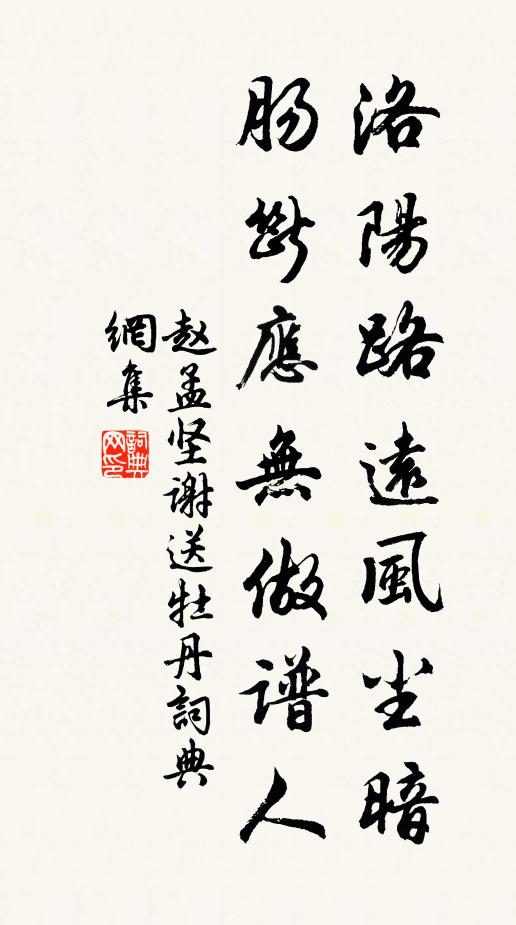 洛陽路遠風尘暗
肠斷應無做譜人
赵孟坚谢送牡丹詞典
網集
詞典网印